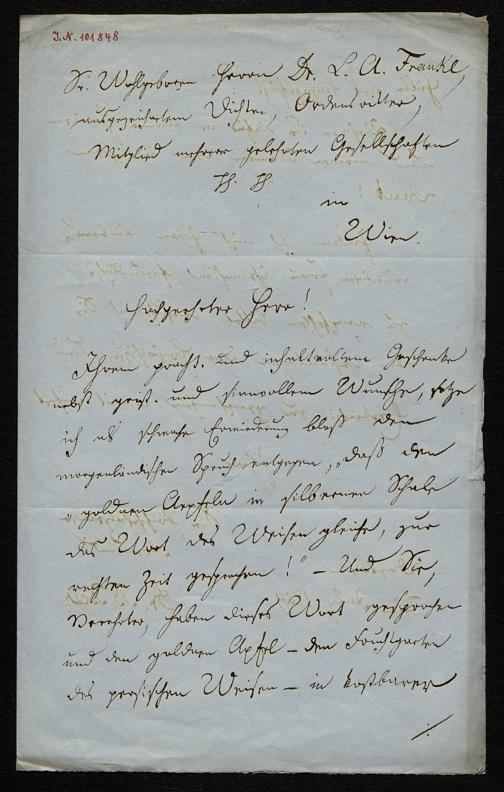 I.N. 101848
Sr. Wohlgeboren Herrn Dr. L. A. Frankl,
ausgezeichnetem Dichter, Ordensritter,
Mitglied mehrerer gelehrten Gesellschaften
in
Wien.
Hochgeehrter Herr!
Ihrem pracht- und inhaltvollem Geschenke
nebst geist- und sinnvollem Wunsche, setze
ich als schwache Erwiederung bloß den
morgenländischen Spruch entgegen, „daß den
„goldnen Aepfeln in silberner Schale
das Wort des Weisen gleiche, zur
rechten Zeit gesprochen!" – Und Sie,
Verehrter, haben dieses Wort gesprochen
und den goldnen Apfel – den Fruchtgarten
des persischen Weisen – in kostbarer
./.